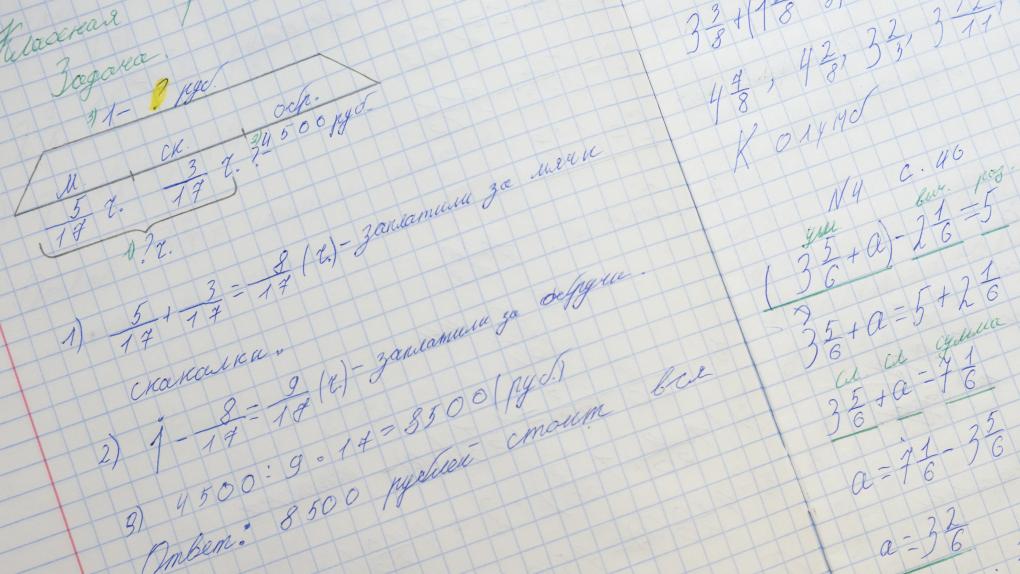 Классная
Задача.
3) 1 - ? руб.
м. ск. обр.
5/17 ч. 3/17 ч. ? - 4500 руб.
1) ? ч.
1) 5/17 + 3/17 = 8/17 (ч.) - заплатили за мячи
скакалки.
2) 1 - 8/17 = 9/17 (ч.) - заплатили за обручи.
3) 4500 : 9 · 17 = 8500 (руб.)
Ответ: 8500 рублей стоит вся
3 3/8 + (1
4 7/8, 4 2/8, 3 2/3, 3
Колумб
№4 с. 46
ум. выч. раз.
(3 5/6 + a) - 2 1/6 = 5
3 5/6 + a = 5 + 2 1/6
сл сл сумма
3 5/6 + a = 7 1/6
a = 7 1/6 - 3 5/6
a = 3 2/6